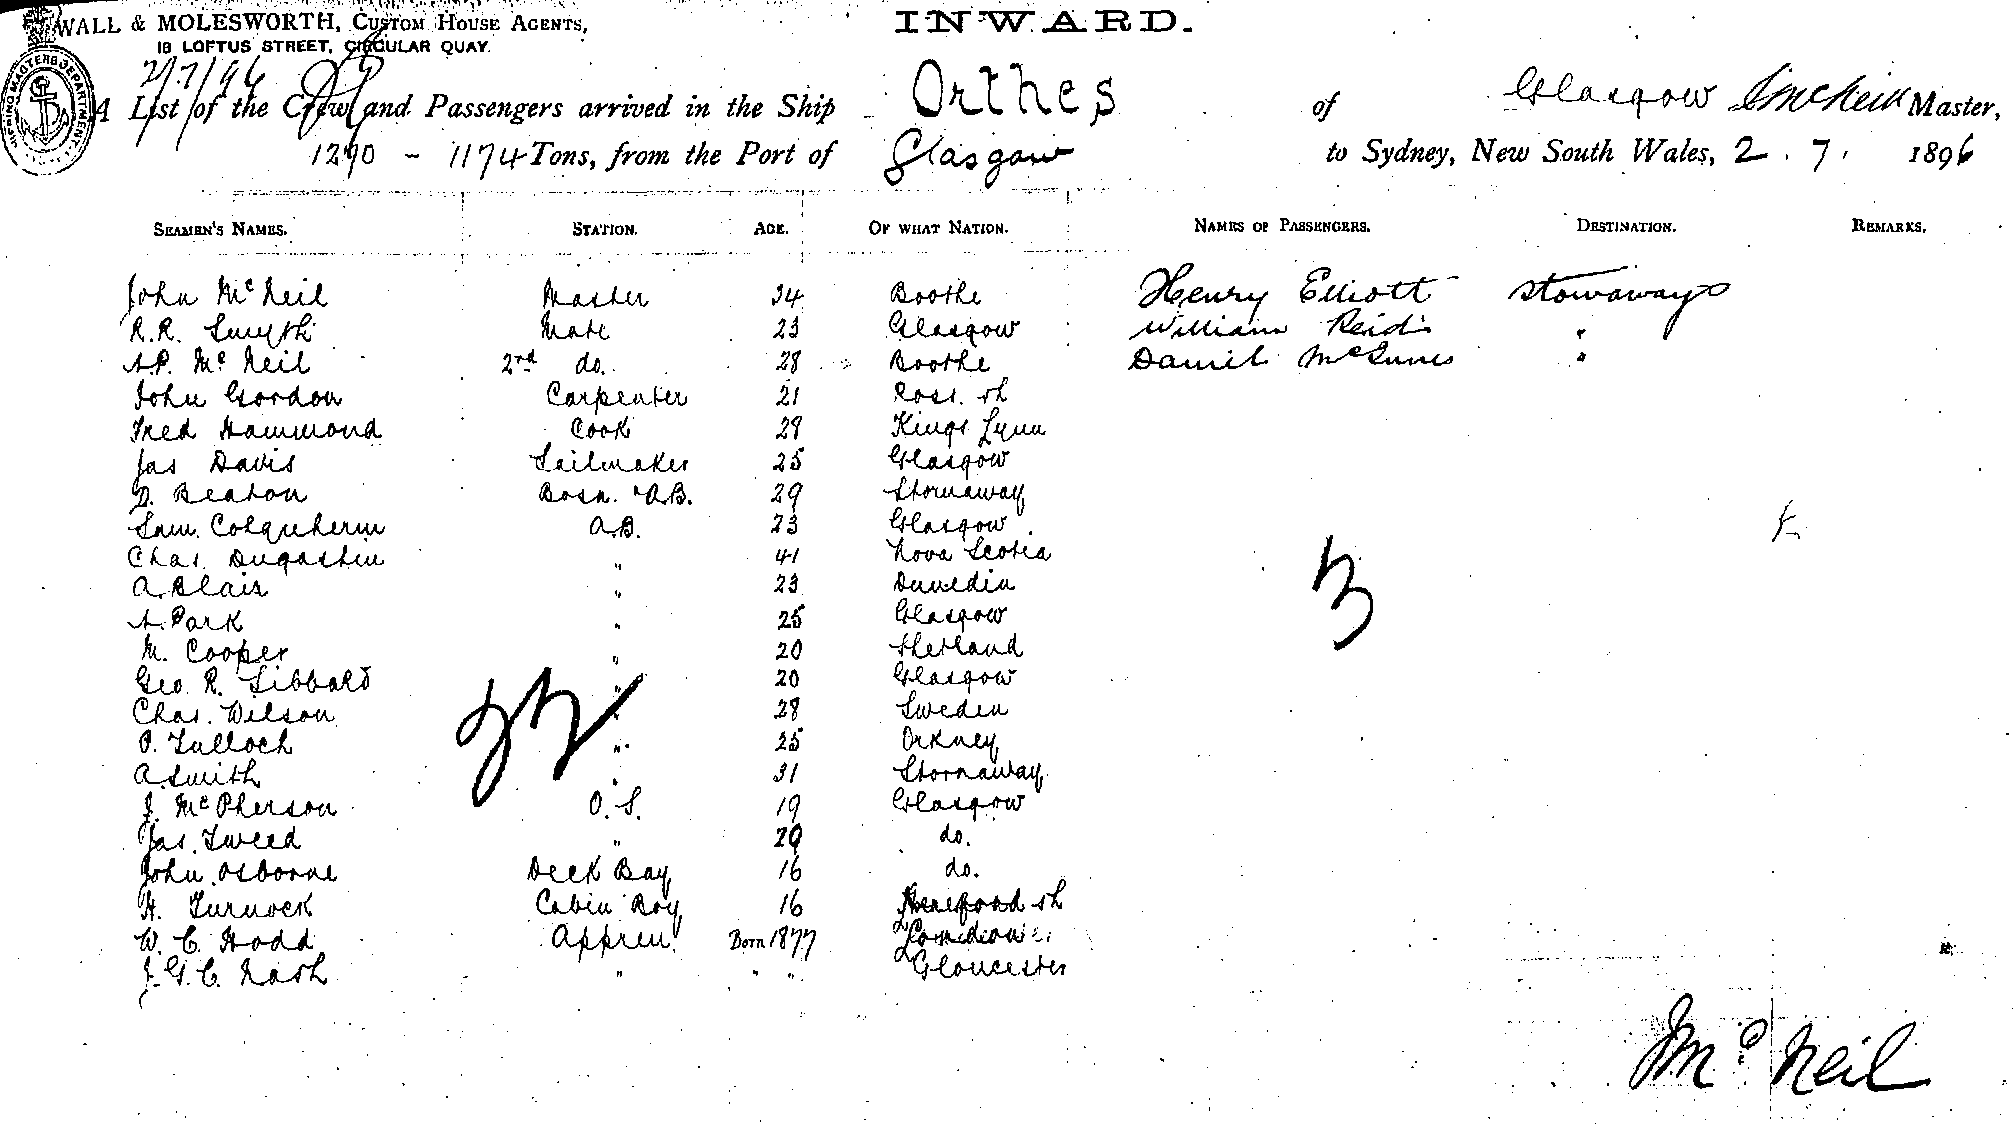 WALL & MOLESWORTH, CUSTOM HOUSE AGENTS,
18 LOFTUS STREET, CIRCULAR QUAY.
INWARD.
2/7/96
A List of the Crew and Passengers arrived in the Ship Orthes of Glasgow J McNeil Master,
1290 - 1174 Tons, from the Port of Glasgow to Sydney, New South Wales, 2. 7. 1896
SEAMEN'S NAMES. STATION. AGE. OF WHAT NATION. NAMES OF PASSENGERS. DESTINATION. REMARKS.
John McNeil Master 34 Boothe Henry Elliott Stowaways
R.R. Smyth Mate 23 Glasgow William Reid "
A.P. McNeil 2nd do. 28 Boothe Daniel McInnes "
John Gordon Carpenter 21 Ross. sh
Fred Hammond Cook 29 Kings Lynn
Jas Davis Sailmaker 25 Glasgow
D. Beaton Bosn. & A.B. 29 Stornaway
Sam. Colquherm A.B. 23 Glasgow
Chas. Dugastin " 41 Nova Scotia
A. Blair " 23 Dunedin
A. Park " 25 Glasgow
M. Cooper " 20 Shetland
Geo. R. Sibbald " 20 Glasgow
Chas. Wilson " 28 Sweden
O. Tulloch " 25 Orkney
A. Smith " 31 Stornaway
J. McPherson O.S. 19 Glasgow
Jas. Tweed " 29 do.
John Osborne Deck Boy 16 do.
H. Turnock Cabin Boy 16 Hereford sh
W. C. Hodd Appren. Born 1877 London
J. G. C. Nash " " " Gloucester
22
3
J McNeil